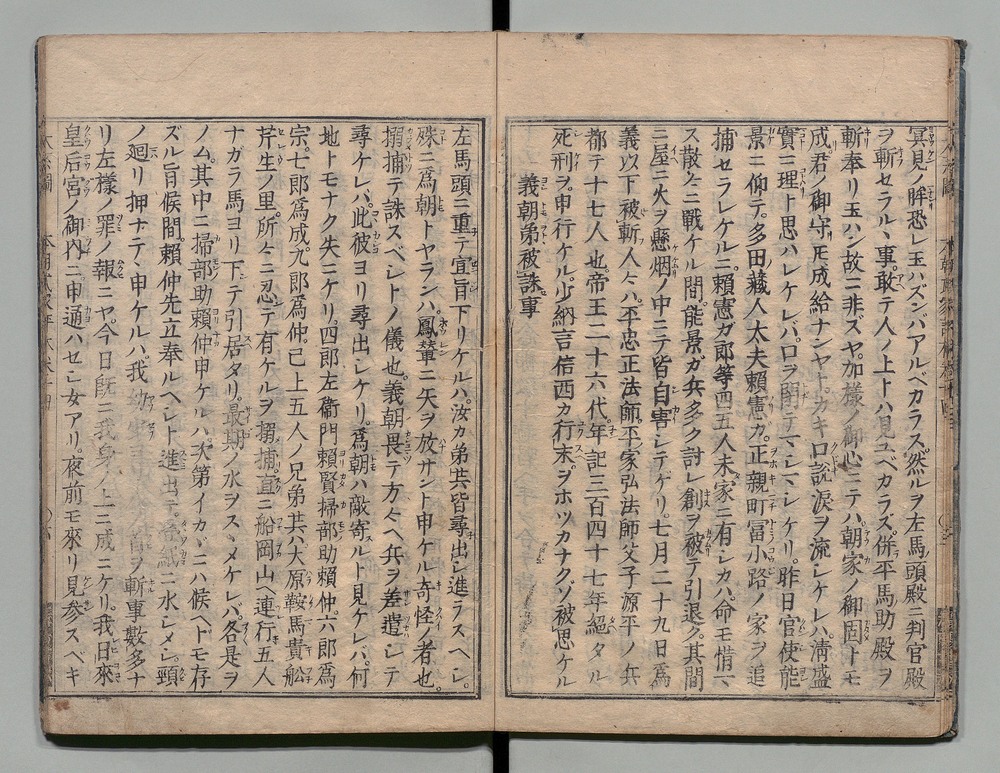 冥見ノ眸恐レ玉ハズンバアルベカラス然ルヲ左馬頭殿ニ判官殿
ヲ斬セラルヽ事敢テ人ノ上トハ見ユベカラズ。併平馬助殿ヲ
斬奉リ玉ハン故ニ非ズヤ。加樣ノ御心ニテハ朝家ノ御固トモ
成君ノ御守トモ成給ナンヤトカキ口説涙ヲ流シケレバ。淸盛
實ニ理ト思ハレケレバ口ヲ閉テマシマシケリ。昨日官使能
景ニ仰テ。多田藏人太夫賴憲カ。正親町冨小路ノ家ヲ追
捕セラレケルニ。賴憲ガ郎等四五人未家ニ有シカハ。命モ惜マ
ス散々ニ戰ケル間。能景ガ兵多ク討レ創ヲ被テ引退ク。其間
ニ屋ニ火ヲ懸烟ノ中ニテ皆自害シテゲリ。七月二十九日爲
義以下被斬人々ハ。平忠正法師。平家弘法師父子源平ノ兵
都テ十七人也。帝王二十六代。年記三百四十七年絕タル
死刑ヲ。申行ケル。少納言信西カ行末。ヲホツカナクソ被思ケル
義朝弟被誅事
左馬頭ニ重テ宣旨下リケルハ。汝カ弟共皆尋出シ進ラスヘシ。
殊ニ爲朝トヤランハ。鳳輦ニ矢ヲ放サント申ケル奇怪ノ者也。
搦捕テ誅スベシトノ儀也。義朝畏テ方々ヘ兵ヲ差遣シテ
尋ケレバ。此彼ヨリ尋出シケリ。爲朝ハ敵寄スルト見ケレバ。何
地トモナク失ニケリ。四郎左衞門賴賢掃部助賴仲。六郎爲
宗。七郎爲成。九郎爲仲。已上五人ノ兄弟共ハ大原鞍馬貴舩
芹生ノ里。所々ニ忍テ有ケルヲ搦捕。直ニ船岡山ヘ連行五人
ナガラ馬ヨリ下テ引居タリ。最期ノ水ヲスヽメケレバ。各是ヲ
ノム。其中ニ掃部助賴仲申ケルハ。次第イカヾニハ候ヘドモ存
ズル旨候間賴仲先立奉ルヘシト進出テ。疊紙ニ水シメシ。頸
ノ廻リ押ナテヽ申ケルハ。我 首ヲ斬事數多ナ
リ左樣ノ罪ノ報ニヤ。今日既ニ我身ノ上ニ成ニケリ。我日來
皇后宮ノ御内ニ申通ハセシ女アリ。夜前モ來リ見參スベキ